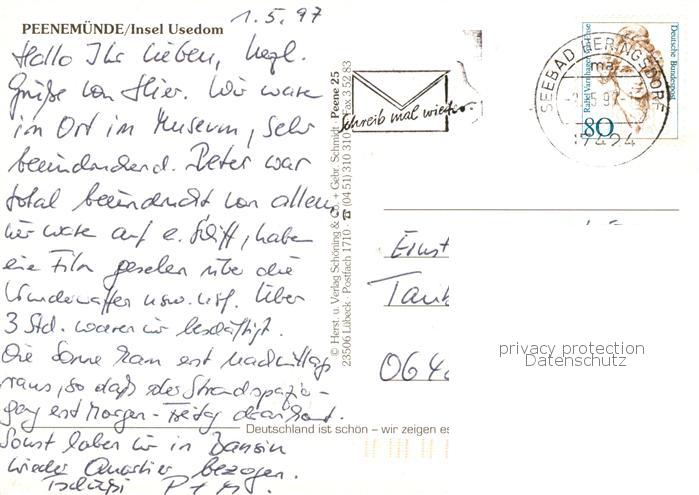 PEENEMÜNDE/Insel Usedom
1.5.97
Hallo Ihr Lieben, herzl.
Grüße von Hier. Wir waren
im Ort im Museum, sehr
beeindruckend. Peter war
total beeindruckt von allem,
wir ware auf e. Schiff, haben
ein Film gesehen über die
Wunderwaffen usw. usf. Über
3 Std. waren wir beschäftigt.
Die Sonne kam erst nachmittags
raus, so daß der Strandspazier-
gang erst Morgen - Freitag dran kommt.
Sonst haben wir in Bansin
wieder Quartier bezogen.
Tschüßi P + M.
© Herst. u. Verlag Schöning & Co. + Gebr. Schmidt · Peene 25
23506 Lübeck · Postfach 1710 · ☎ (04 51) 310 310 Fax 3 52 83
Schreib mal wieder
SEEBAD HERINGSDORF
ma
17424
Deutsche Bundespost
Rahel Varnhagen von Ense
80
Ernst
06
Deutschland ist schön – wir zeigen es
privacy protection
Datenschutz